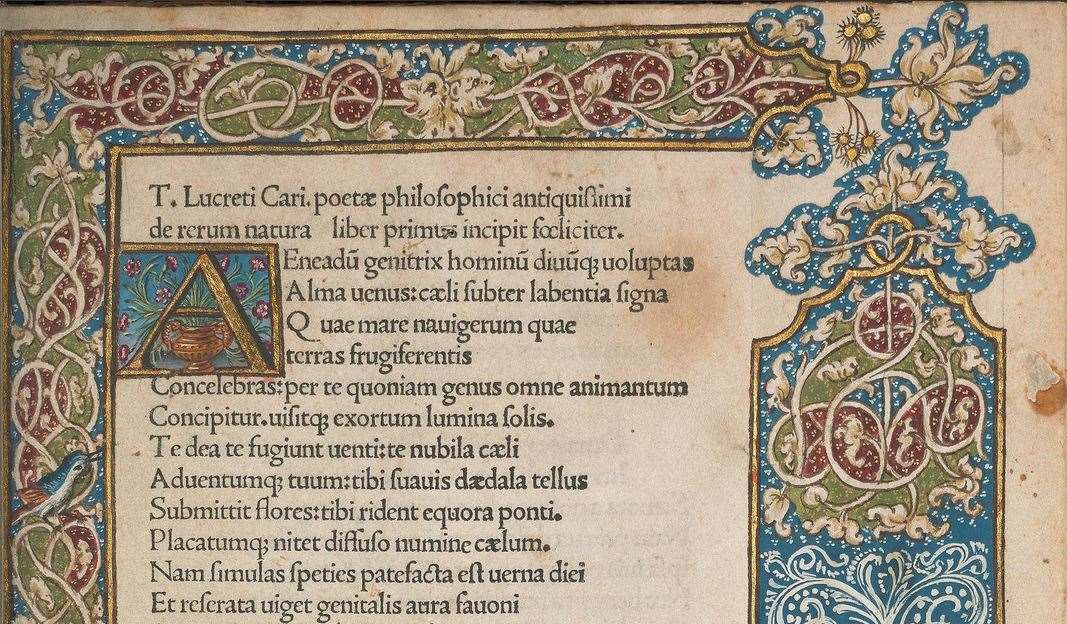 T. Lucreti Cari. poetæ philoſophici antiquiſſimi
de rerum natura liber primus incipit fœliciter.
AEneadū genitrix hominū diuūq; uoluptas
Alma uenus: cæli ſubter labentia ſigna
Quae mare nauigerum quae
terras frugiferentis
Concelebras: per te quoniam genus omne animantum
Concipitur. uiſitq; exortum lumina ſolis.
Te dea te fugiunt uenti: te nubila cæli
Aduentumq; tuum: tibi ſuauis dædala tellus
Submittit flores: tibi rident equora ponti.
Placatumq; nitet diffuſo numine cælum.
Nam ſimulas ſpeties patefacta eſt uerna diei
Et reſerata uiget genitalis aura fauoni